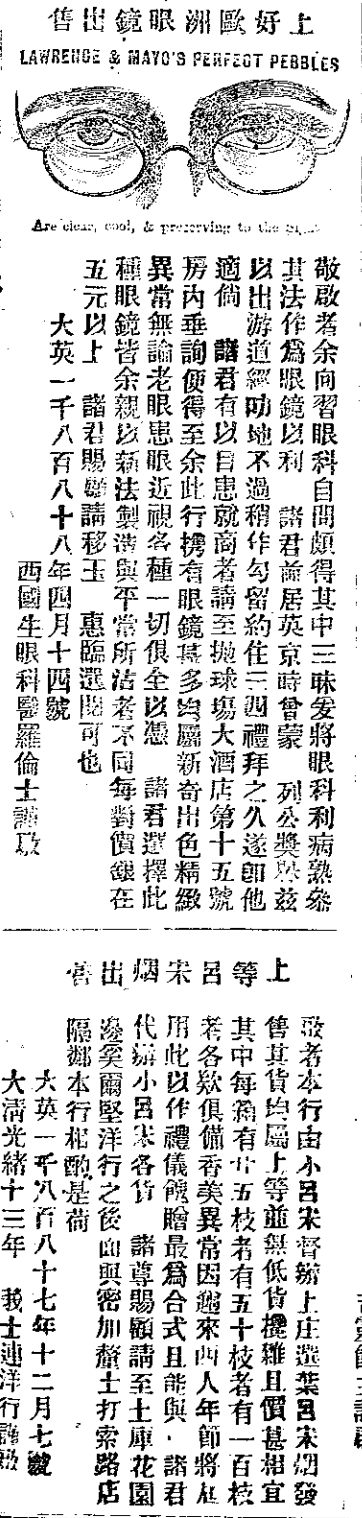 上好歐洲眼鏡出售
LAWRENCE & MAYO'S PERFECT PEBBLES
Are clear, cool, & preserving to the
敬啟者余向習眼科自問頗得其中三昧爰將眼科利病熟參
其法作爲眼鏡以利 諸君前居英京時曾蒙 列公獎 茲
以出游道經叻地不過稍作勾留約住三四禮拜之久遂卽他
適倘 諸君有以目患就商者請至拋球塲大酒店第十五號
房內垂詢便得至余此行攜有眼鏡甚多均屬新奇出色精緻
異常無論老眼患眼近視各種一切俱全以憑 諸君選擇此
種眼鏡皆余親以新法製造與平常所沽者不同每對價銀在
五元以上 諸君賜顧請移玉 惠臨選閱可也
大英一千八百八十八年四月十四號
西國生眼科醫羅倫士謹啟
上等呂宋烟出售
啟者本行由小呂宋督辦上庄選葉呂宋烟發
售其貨均屬上等並無低貨攙雜且價甚相宜
其中每箱有廿五枝者有五十枝者有一百枝
者各欵俱備香美異常因邇來西人年節將屆
用此以作禮儀餽贈最爲合式且能與 諸君
代辦小呂宋各貨 諸尊賜顧請至土庫花園
邊爹爾堅洋行之後面與密加釐士打索路店
隔鄰本行相酌是荷
大英一千八百八十七年十二月七號
大清光緒十三年 莪士連洋行謹啟